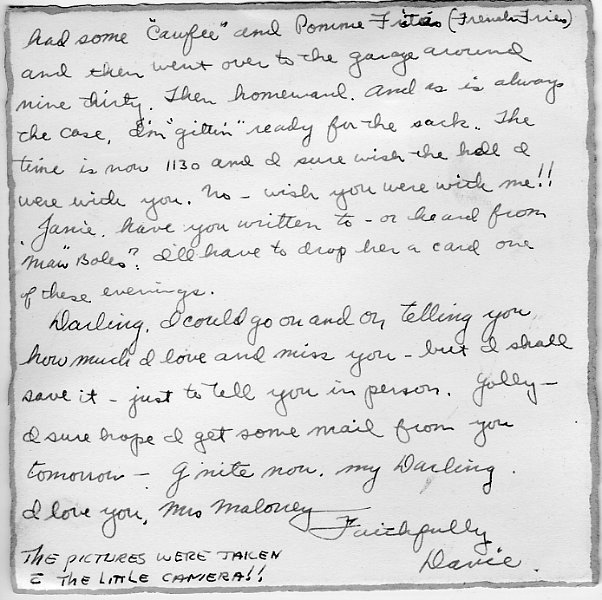 had some "cawfee" and Pomme Frites (French Fries)
and then went over to the garage around
nine thirty. Then homeward. And as is always
the case, I'm "gittin" ready for the sack.. The
time is now 1130 and I sure wish the hell I
were with you. No - wish you were with me!!
Janie, have you written to - or heard from
"Maw" Boles? I'll have to drop her a card one
of these evenings.
Darling, I could go on and on, telling you
how much I love and miss you - but I shall
save it - just to tell you in person. Golly -
I sure hope I get some mail from you
tomorrow - G'nite now, my Darling.
I love you, Mrs Maloney
Faithfully
Davie.
THE PICTURES WERE TAKEN
c̄ THE LITTLE CAMERA!!